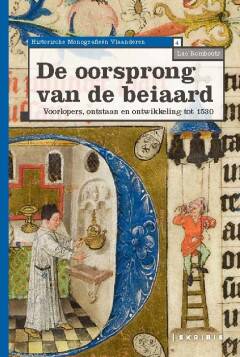 Historische Monografieën Vlaanderen
4
Luc Rombouts
De oorsprong
van de beiaard
Voorlopers, ontstaan en ontwikkeling tot 1530
SKRIBIS